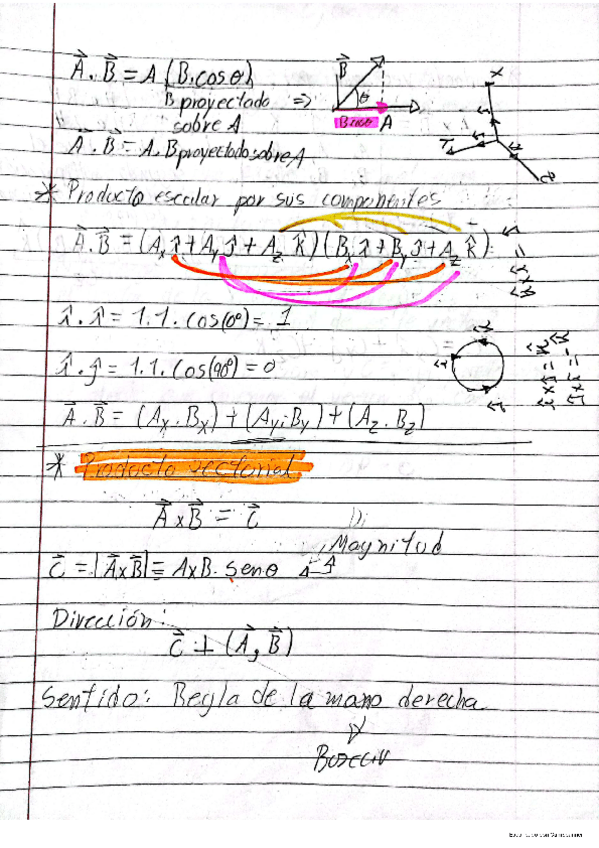 A⃗ . B⃗ = A (B.cosθ)
B proyectado =>
sobre A
B⃗
θ
Bcosθ A
A⃗ . B⃗ = A. B proyectado sobre A
* Producto escalar por sus componentes
A⃗.B⃗ = (Ax î + Ay ĵ + Az k̂) (Bx î + By ĵ + Az k̂)
î . î = 1.1. cos(0º) = 1
î . ĵ = 1.1. cos(90º) = 0
A⃗ . B⃗ = (Ax . Bx) + (Ay . By) + (Az . Bz)
* Producto vectorial
A⃗ x B⃗ = C⃗
Magnitud
C⃗ = |A⃗xB⃗| = AxB. senθ
Dirección:
C⃗ ⊥ (A⃗, B⃗)
Sentido: Regla de la mano derecha